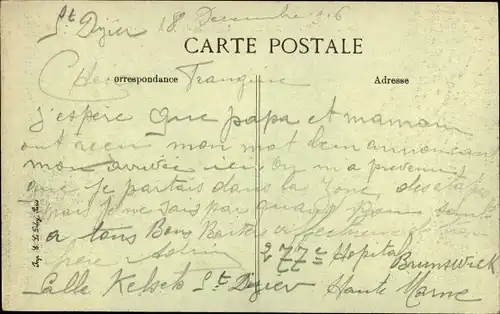 St Dizier 18 Decembre 1916
CARTE POSTALE
Correspondance
Adresse
Chere Françine
j'espère que papa et maman
ont recu mon mot leur annoncant
mon arrivée ici on m'a prevenu
que je partais dans la Zone des étapes
mais je ne sais pas quand Bonne
a tous Bons Baisers a
père
277e Hopital
Brunswick
Salle Kelsch St Dizier Haute Marne